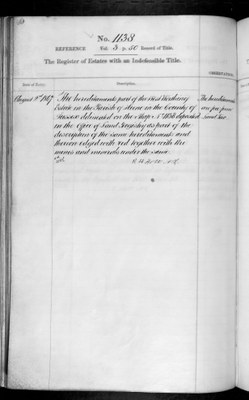 No. 1138
REFERENCE Vol: 3 p. 50 Record of Title.
The Register of Estates with an Indefeasible Title.
Date of Entry.
Description.
OBSERVATIONS.
August 3rd 1867
The hereditaments part of the West
Estate in the Parish of in the County of
Sussex delineated on the Map No. 1138 deposited
in the Office of Land Registry as part of the
description of the same hereditaments and
thereon edged with red together with the
mines and minerals under the same
The hereditaments
are free from
Land Tax